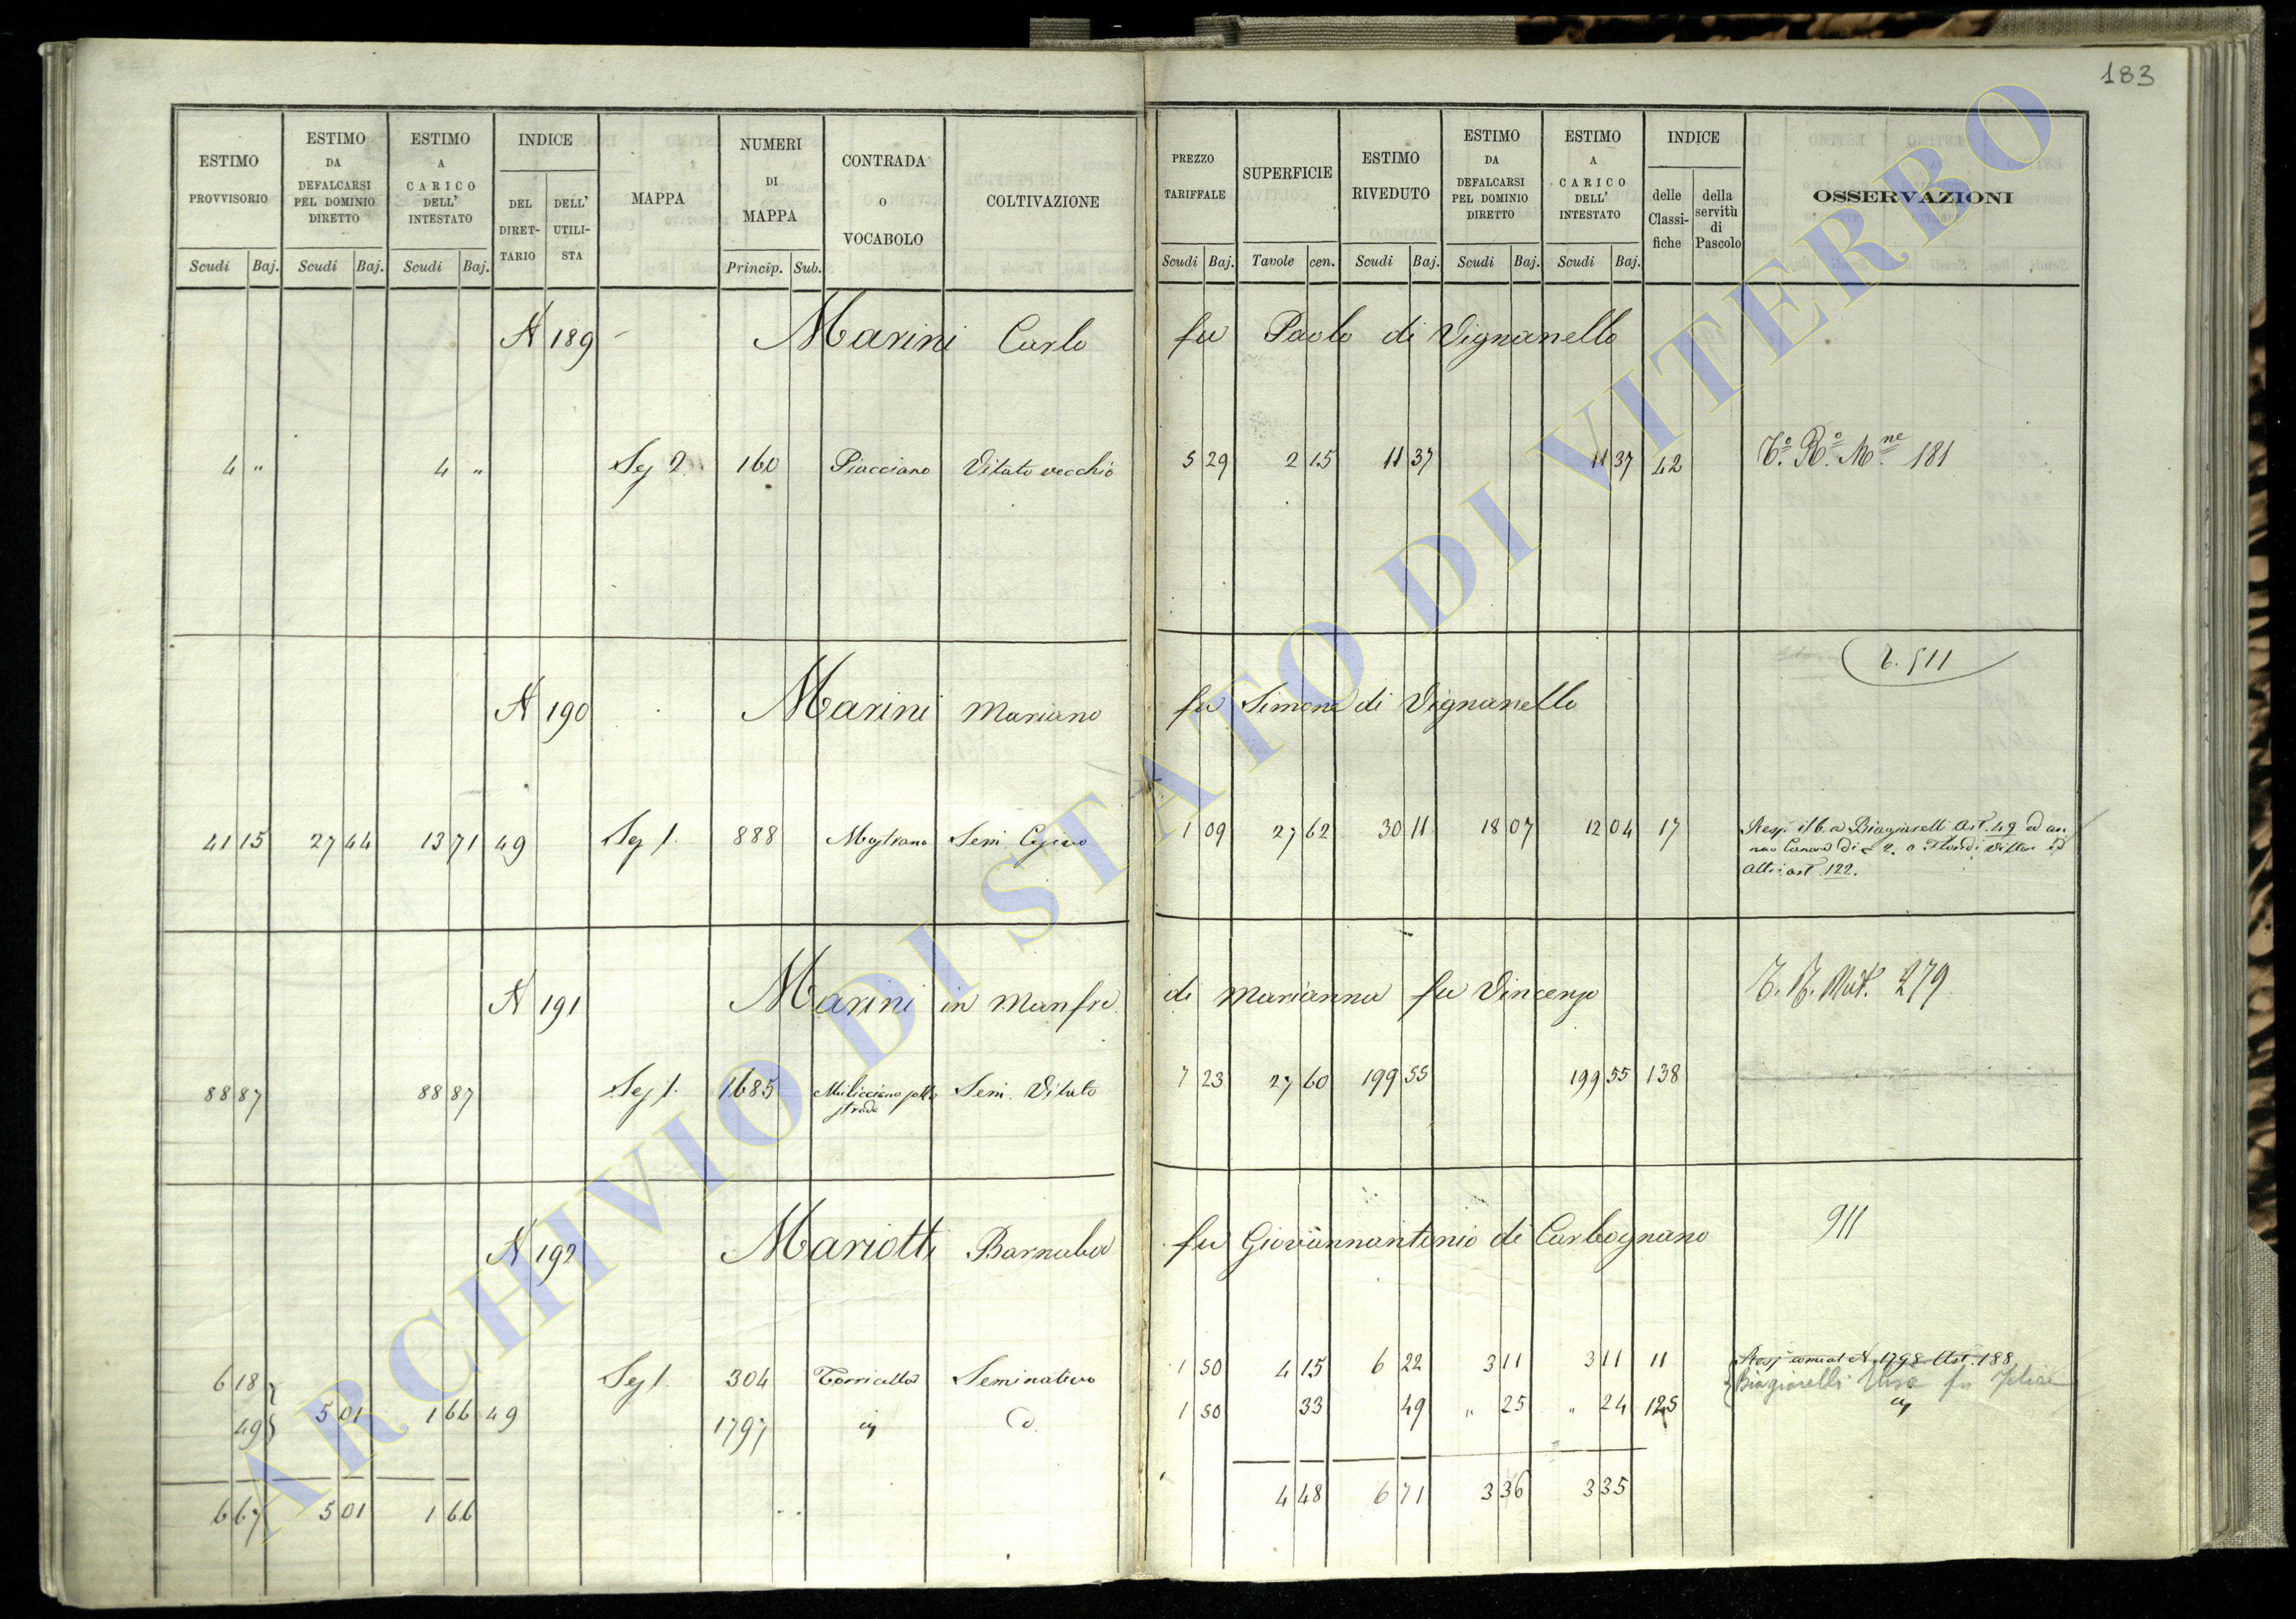 183
ESTIMO PROVVISORIO
ESTIMO DA DEFALCARSI PEL DOMINIO DIRETTO
ESTIMO A CARICO DELL' INTESTATO
INDICE
DEL DIRET-TARIO
DELL' UTILI-STA
MAPPA
NUMERI DI MAPPA
CONTRADA O VOCABOLO
COLTIVAZIONE
PREZZO TARIFFALE
SUPERFICIE
ESTIMO RIVEDUTO
ESTIMO DA DEFALCARSI PEL DOMINIO DIRETTO
ESTIMO A CARICO DELL' INTESTATO
INDICE
delle Classi-fiche
della servitù di Pascolo
OSSERVAZIONI
Scudi Baj. Scudi Baj. Scudi Baj. Princip. Sub. Scudi Baj. Tavole cen. Scudi Baj. Scudi Baj. Scudi Baj.
N 189 Marini Carlo fu Paolo di Vignanello
4 " 4 " Sez 2. 160 Piacciano Vitato vecchio 5 29 2 15 11 37 11 37 42 181
511
N 190 Marini Mariano fu Simone di Vignanello
41 15 27 44 13 71 49 Sez 1. 888 Sem 1 09 27 62 30 11 18 07 12 04 17 Resp. a Biagiarelli Art. 49 ed an
nuo Canone di 2. a Vittor ed
altri art. 122.
N 191 Marini in Manfre di Marianna fu Vincenzo 279
88 87 88 87 Sez 1. 1685 Milicciano sotto strada Sem. Vitato 7 23 27 60 199 55 199 55 138
N 192 Mariotti Barnaba fu Giovannantonio di Carbognano 911
6 18 Sez 1. 304 Torricella Seminativo 1 50 4 15 6 22 3 11 3 11 11 Resp come al N. 1798 Art. 188
Biagiarelli fu Felice
49 5 01 1 66 49 1797 1 50 33 49 " 25 " 24 125
6 67 5 01 1 66 4 48 6 71 3 36 3 35
ARCHIVIO DI STATO DI VITERBO